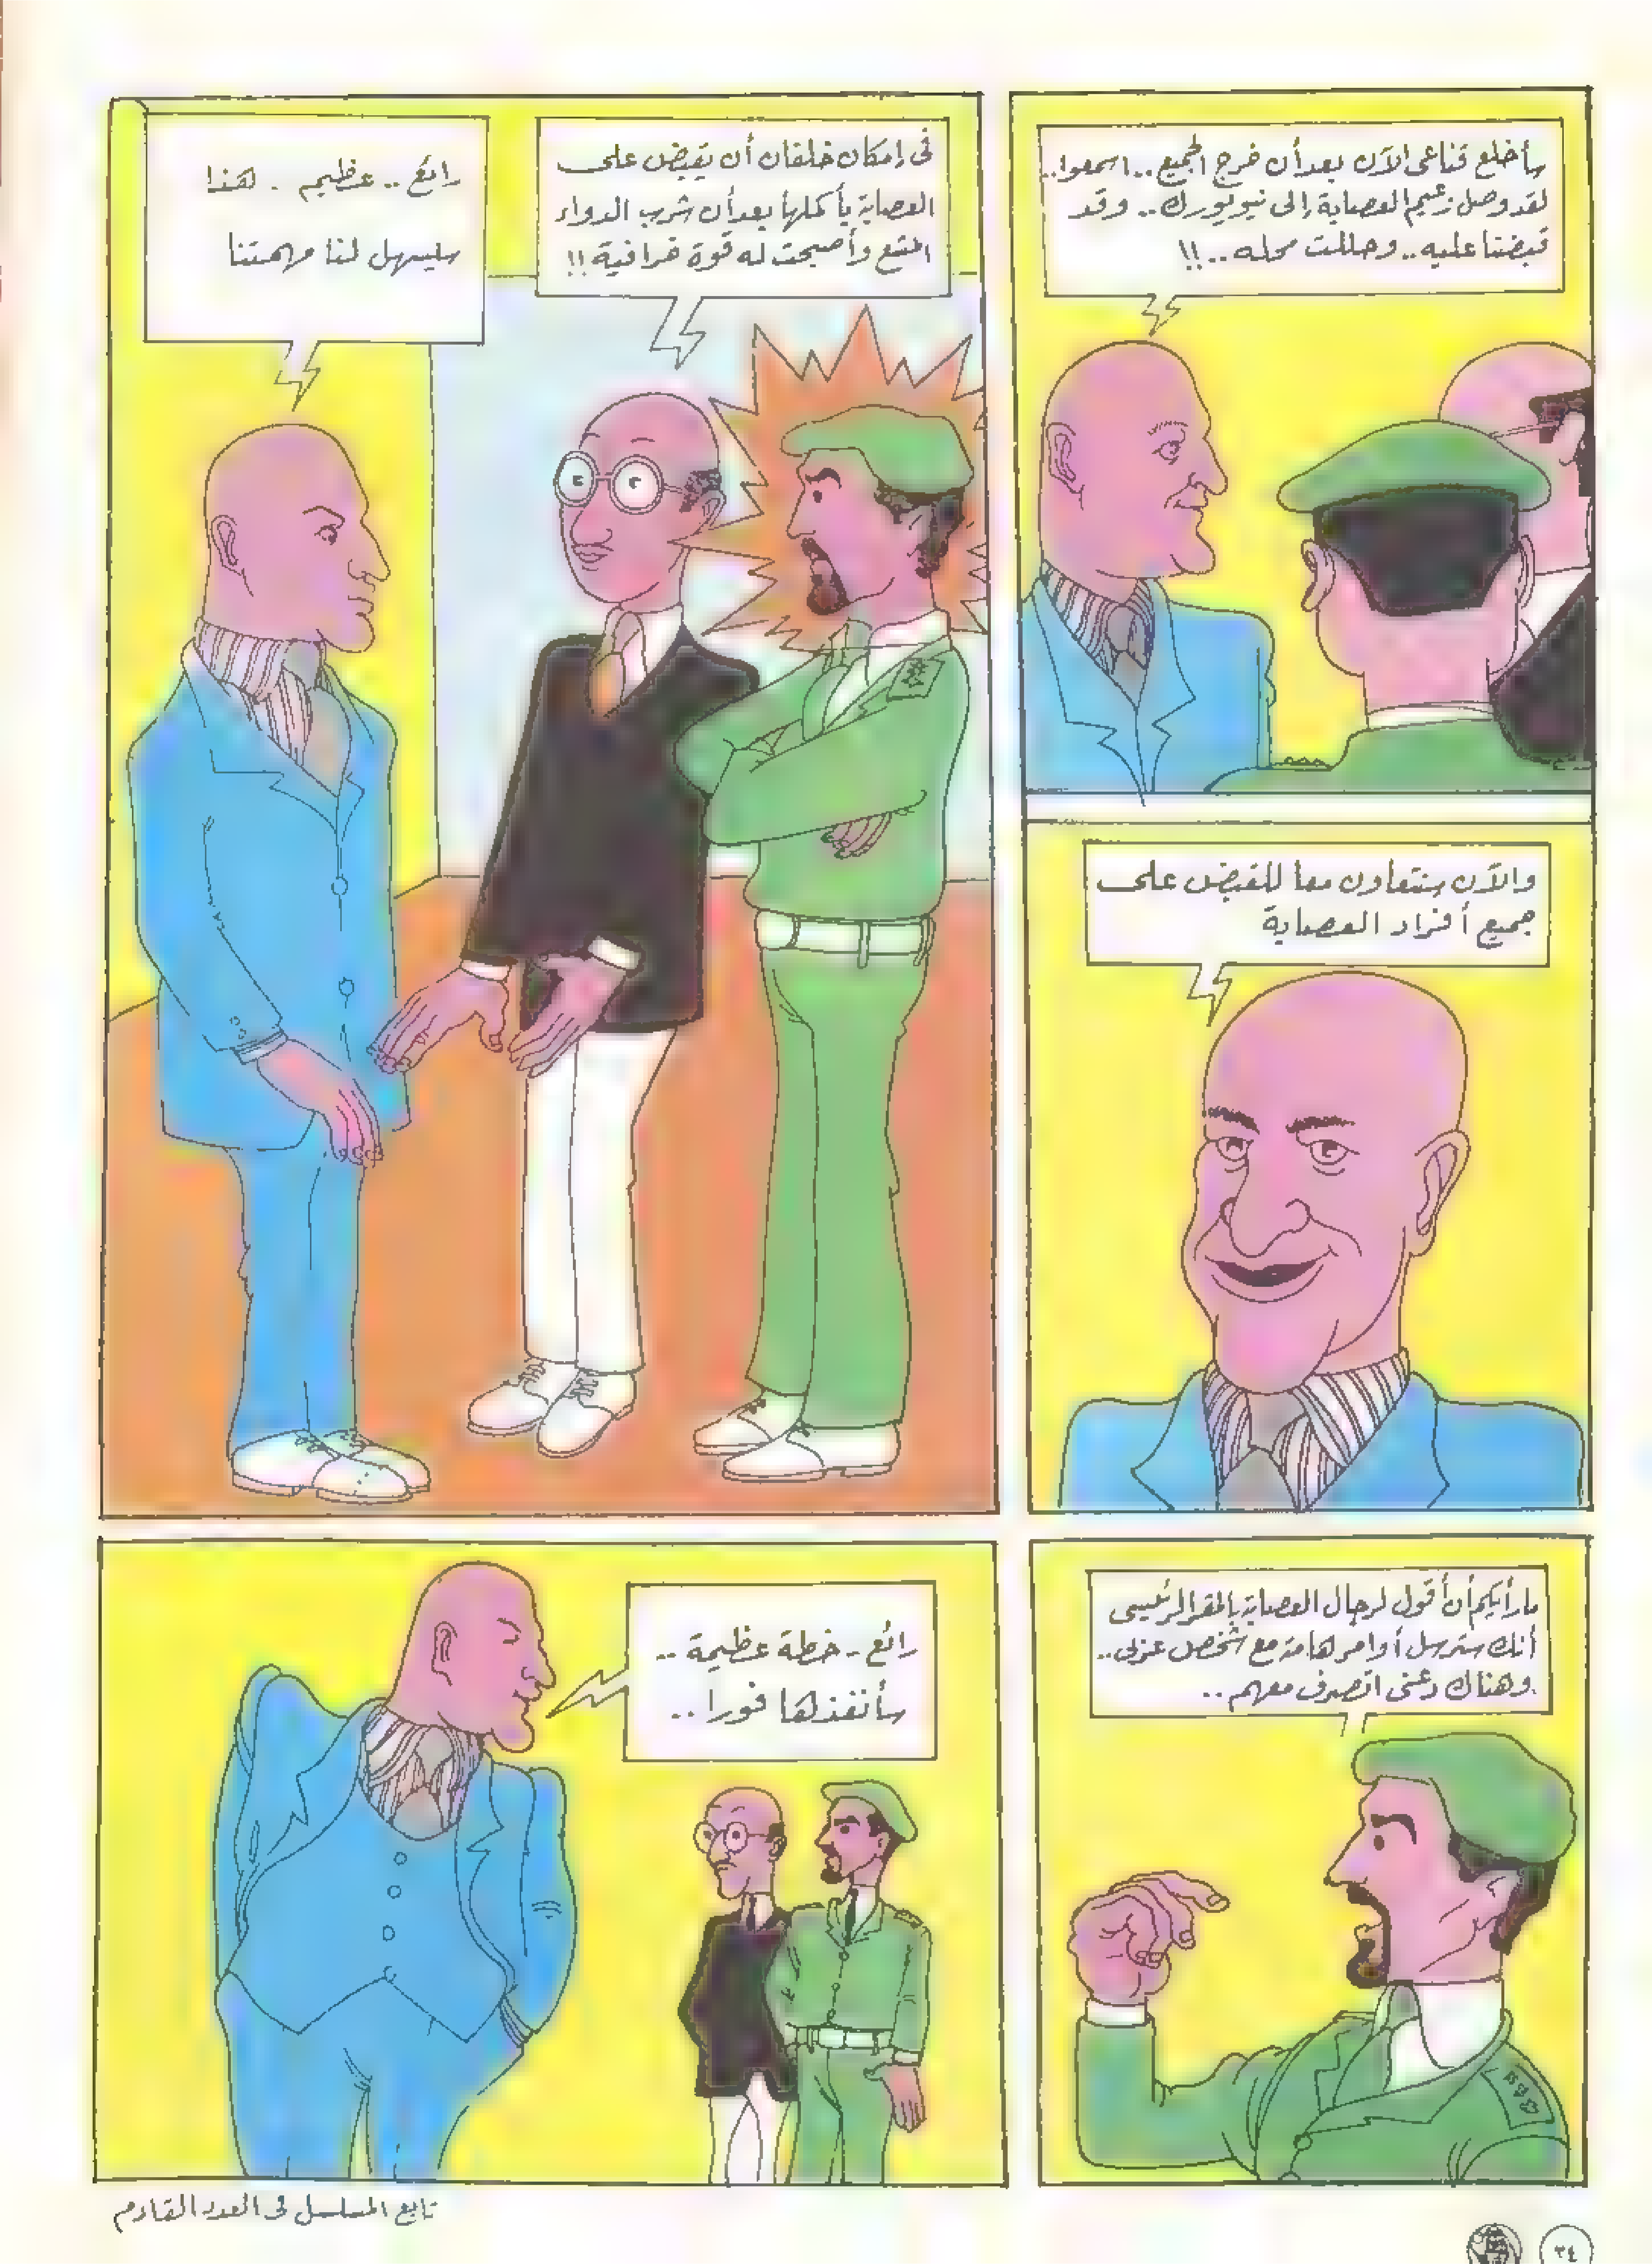 سأخلع قناعى الآن بعد أن خرج الجميع .. اسمعوا ..
لقد وصل زعيم العصابة إلى نيويورك .. وقد
قبضنا عليه .. وحللت محله .. !!
والآن سنتعاون معا للقبض على
جميع أفراد العصابة
فى إمكان خلفان أن يقبض على
العصابة بأكملها بعد أن شرب الدواء
المشع وأصبحت له قوة خرافية !!
رائع .. عظيم . هذا
سيسهل لنا مهمتنا
ما رأيكم أن أقول لرجال العصابة بالمقر الرئيسى
أنك سترسل أوامر هامة مع شخص عربى ..
وهناك دعنى اتصرف معهم ..
رائع - خطة عظيمة ..
سأنفذها فورا ..
تابع المسلسل فى العدد القادم
٣٤